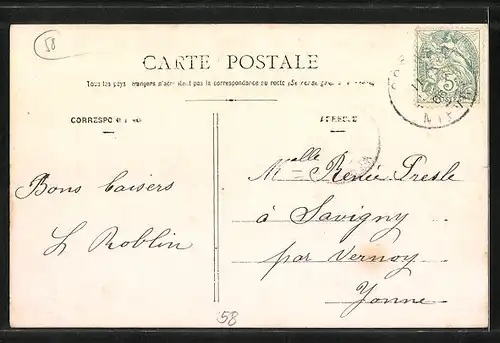 58
CARTE POSTALE
Tous les pays étrangers n'acceptent pas la correspondance au recto
CORRESPO
ADRESSE
Bons baisers
L Roblin
Melle Renée Presle
à Savigny
par Vernoy
Yonne
58